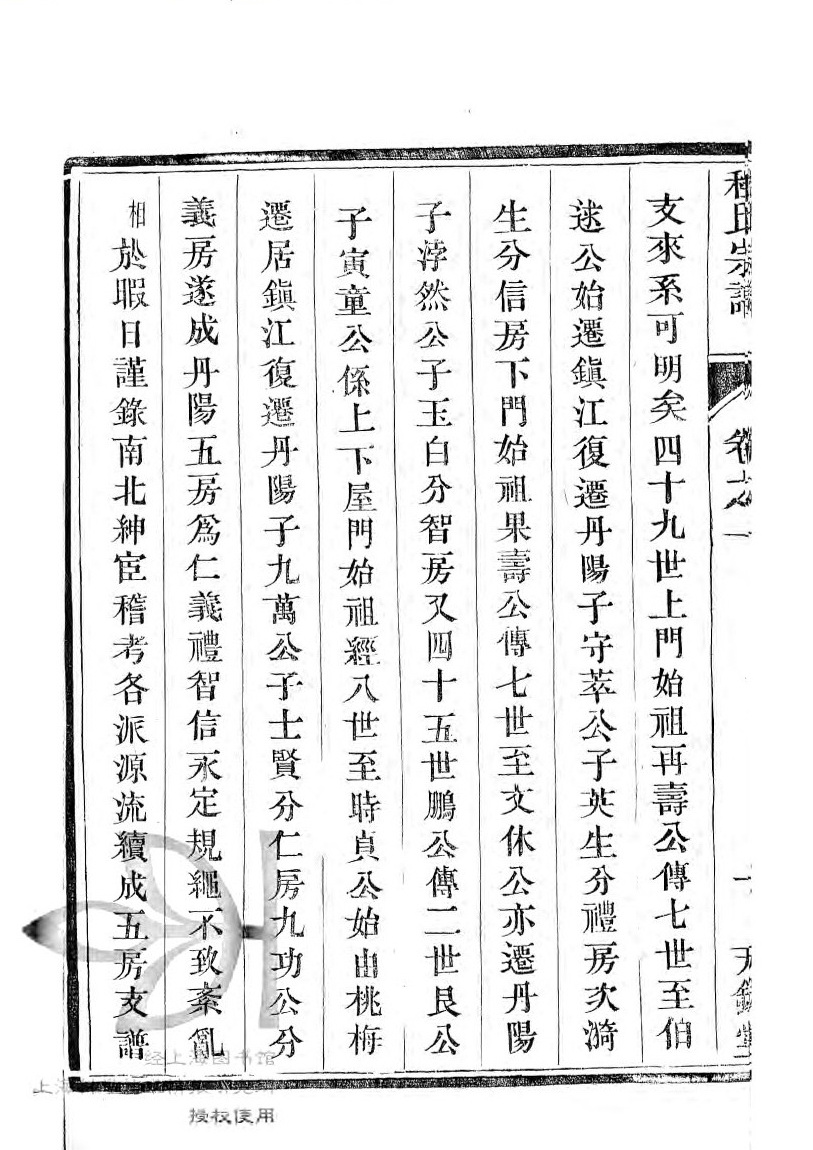 氏宗譜
卷之一
一
支來系可明矣四十九世上門始祖再壽公傳七世至伯
逑公始遷鎮江復遷丹陽子守萃公子英生分禮房次漪
生分信房下門始祖果壽公傳七世至文休公亦遷丹陽
子浡然公子玉白分智房又四十五世鵬公傳二世艮公
子寅童公係上下屋門始祖經八世至時貞公始由桃梅
遷居鎮江復遷丹陽子九萬公子士賢分仁房九功公分
義房遂成丹陽五房爲仁義禮智信永定規繩不致紊亂
相於暇日謹錄南北紳宦稽考各派源流續成五房支譜
经上海图书馆
上海
授权使用